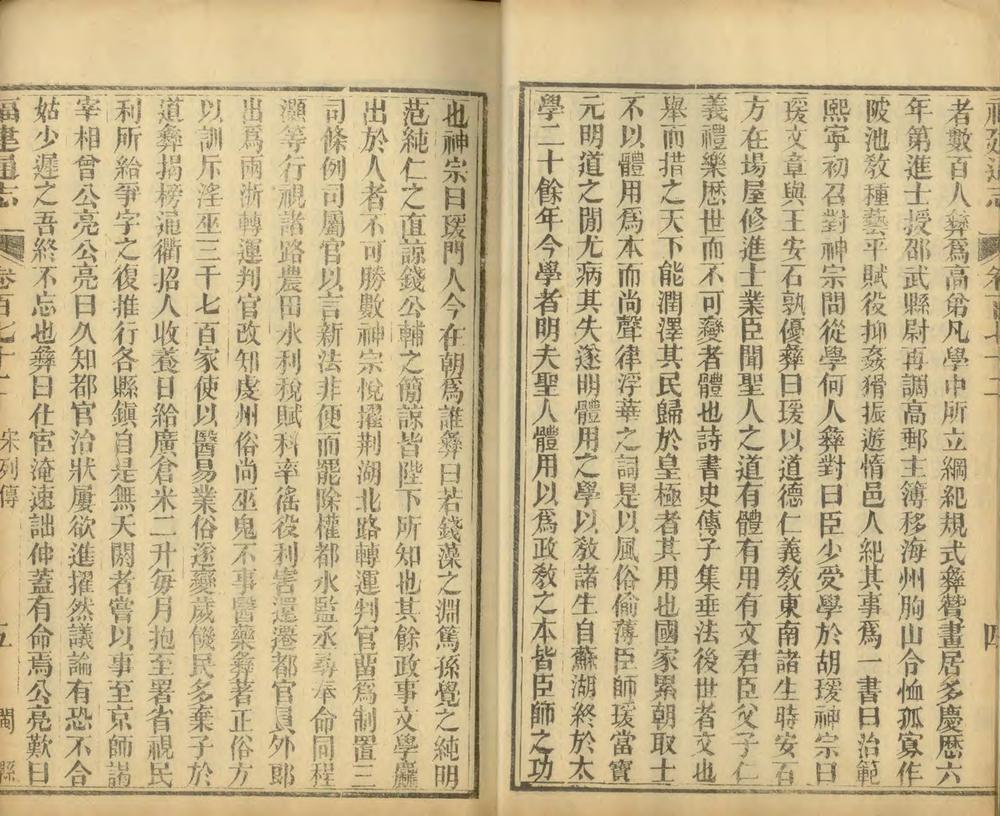 福建通志 卷百七十二 四
者數百人彝爲高第凡學中所立綱紀規式彝贊畫居多慶厯六
年第進士授邵武縣尉再調高郵主簿移海州朐山令恤孤寡作
陂池敎種藝平賦役抑姦猾振遊惰邑人紀其事爲一書曰治範
熙寧初召對神宗問從學何人彝對曰臣少受學於胡瑗神宗曰
瑗文章與王安石孰優彝曰瑗以道德仁義敎東南諸生時安石
方在場屋修進士業臣聞聖人之道有體有用有文君臣父子仁
義禮樂歷世而不可變者體也詩書史傳子集垂法後世者文也
舉而措之天下能潤澤其民歸於皇極者其用也國家累朝取士
不以體用爲本而尚聲律浮華之詞是以風俗偷薄臣師瑗當寶
元明道之閒尤病其失遂明體用之學以敎諸生自蘇湖終於太
學二十餘年今學者明夫聖人體用以爲政敎之本皆臣師之功
也神宗曰瑗門人今在朝爲誰彝曰若錢藻之淵篤孫覺之純明
范純仁之直諒錢公輔之簡諒皆陛下所知也其餘政事文學麤
出於人者不可勝數神宗悅擢荆湖北路轉運判官留爲制置三
司條例司屬官以言新法非便而罷除權都水監丞尋奉命同程
灝等行視諸路農田水利稅賦科率徭役利害還遷都官員外郎
出爲兩浙轉運判官改知虔州俗尚巫鬼不事醫藥彝著正俗方
以訓斥淫巫三千七百家使以醫易業俗遂變歲饑民多棄子於
道彝揭榜通衢招人收養日給廣倉米二升每月抱至署省視民
利所給爭字之復推行各縣鎭自是無夭閼者嘗以事至京師謁
宰相曾公亮公亮曰久知都官治狀屢欲進擢然議論有恐不合
姑少遲之吾終不忘也彝曰仕宦淹速詘伸蓋有命焉公亮歎曰
福建通志 卷百七十二 宋列傳 五 閩縣